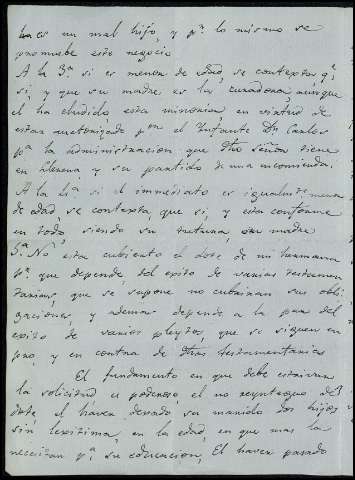 es un mal hijo, y p.r lo mismo se
promuebe este negocio
A la 3.a si es menor de edad, se contexta q.e
si, y que su madre es la curadora, aunque
el ha eludido esta minoria en virtud de
estar autorizado por el Infante Dn Carlos
p.a la administracion que dho Señor tiene
en Llerena y su partido de una encomienda.
A la 4.a si el immediato es igualm.te menor
de edad, se contexta, que si, y esta conforme
en todo, siendo su tutora, su madre
5.a No esta cubierto el dote de mi hermana
p.r que depende del exito de varias testamen
tarias, que se supone no cubriran sus obli
gaciones, y ademas depende a la par del
exito de varios pleytos, que se siguen en
pro, y en contra de dhas testamentarias
El fundamento en que debe estrivar
la solicitud es poderoso, el no reyntegro del
dote, el haver dexado su marido dos hijos
sin lexitima, en la edad, en que mas la
necesitan p.a su educacion, El haver pasado